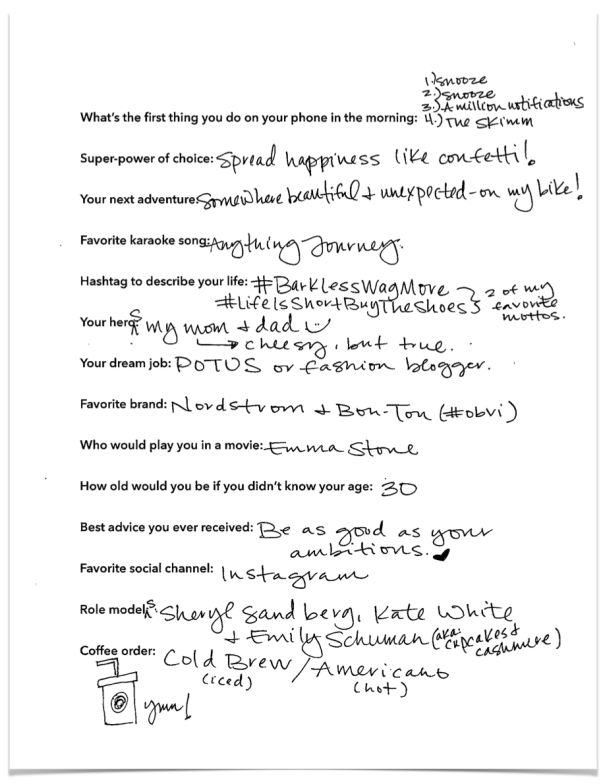 1.) snooze
2.) snooze
3.) A million notifications
What's the first thing you do on your phone in the morning: 4.) The Skimm
Super-power of choice: Spread happiness like confetti!
Your next adventure: Somewhere beautiful + unexpected - on my bike!
Favorite karaoke song: Anything Journey.
Hashtag to describe your life: #BarkLessWagMore } 2 of my
#LifeIsShortBuyTheShoes } favorite
mottos.
Your heros: my mom + dad
cheesy, but true.
Your dream job: POTUS or fashion blogger.
Favorite brand: Nordstrom + Bon-Ton (#obvi)
Who would play you in a movie: Emma Stone
How old would you be if you didn't know your age: 30
Best advice you ever received: Be as good as your
ambitions.
Favorite social channel: Instagram
Role models: Sheryl Sandberg, Kate White
+ Emily Schuman (aka: cupcakes + cashmere)
Coffee order: Cold Brew / Americano
(iced) (hot)
yum!